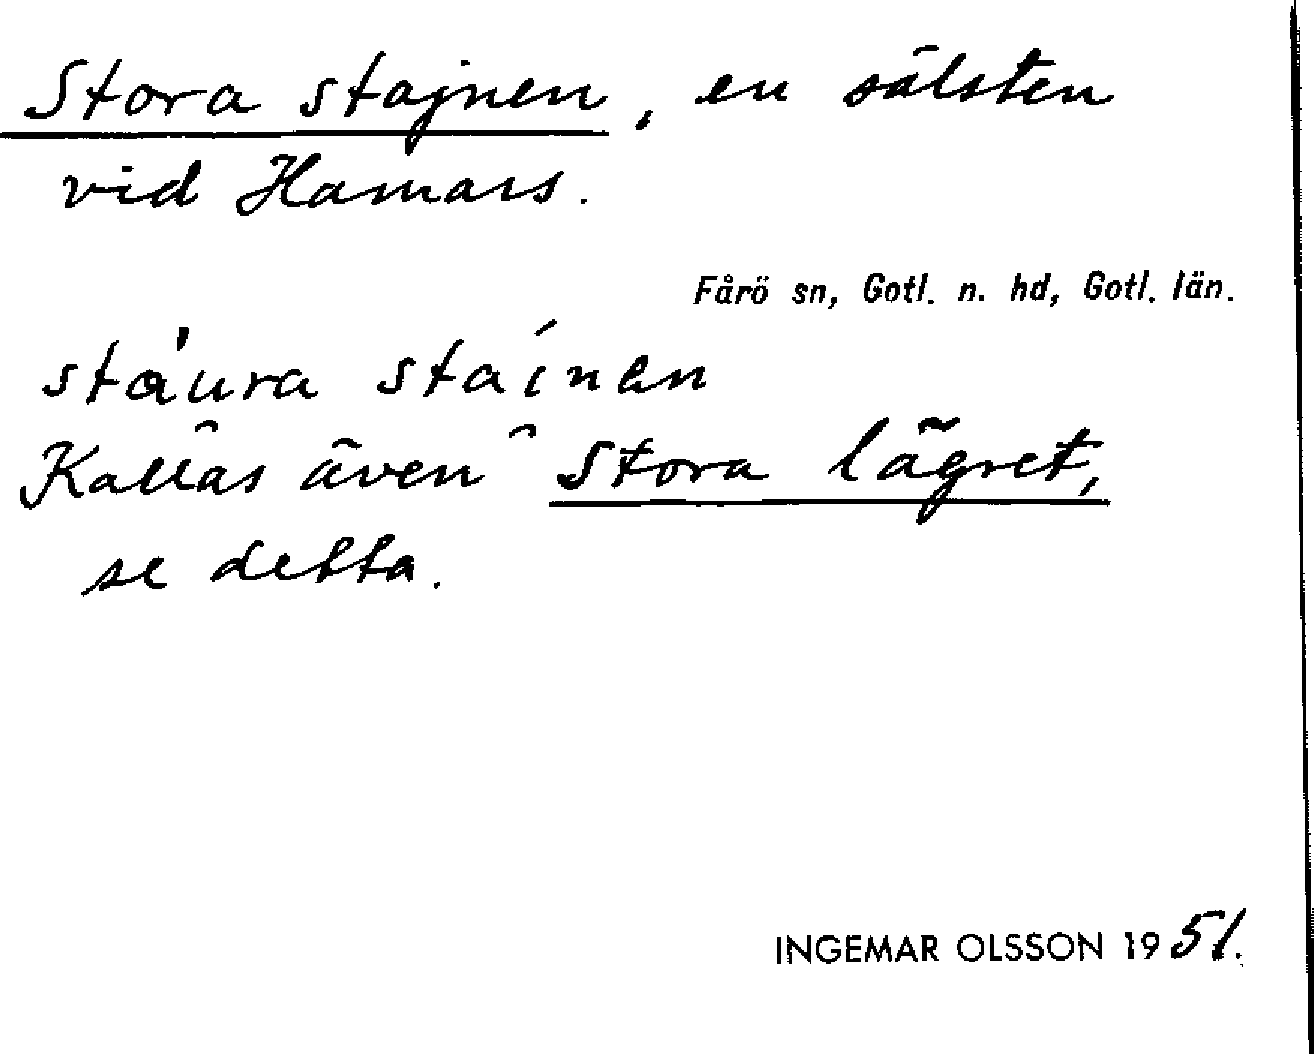 Stora stajnen, en sälsten
vid Hamars.
Fårö sn, Gotl. n. hd, Gotl. län.
stáura staínen
Kallas även Stora lägret,
se detta.
INGEMAR OLSSON 1951.